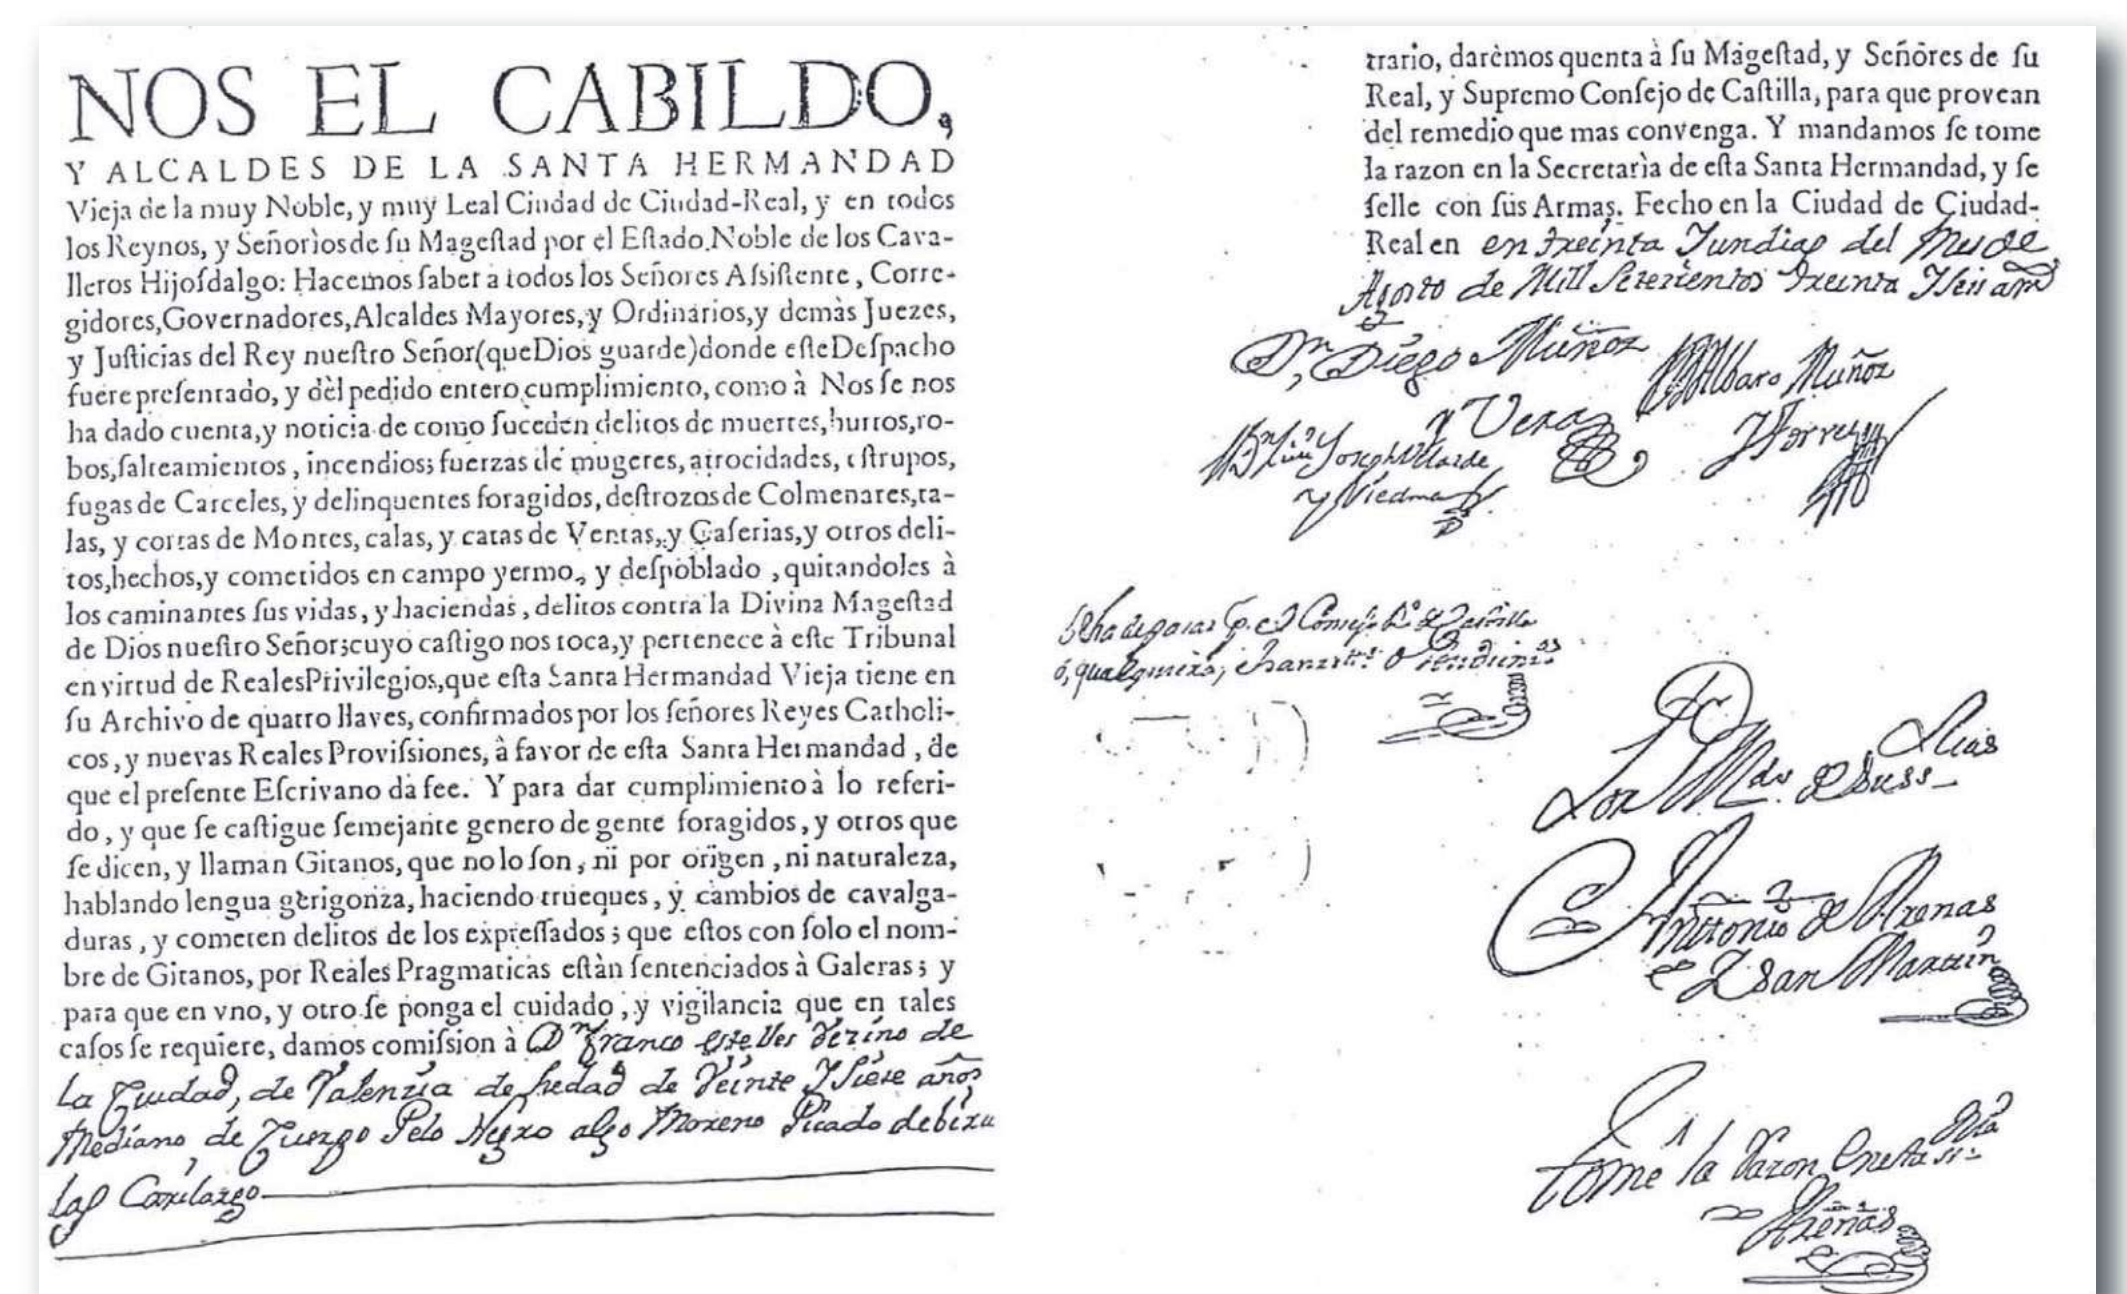 NOS EL CABILDO,
Y ALCALDES DE LA SANTA HERMANDAD
Vieja de la muy Noble, y muy Leal Ciudad de Ciudad-Real, y en todos
los Reynos, y Señorìos de ſu Mageſtad por el Eſtado Noble de los Cava-
lleros Hijoſdalgo: Hacemos ſaber a todos los Señores Aſsiſtente, Corre-
gidores, Governadores, Alcaldes Mayores, y Ordinarios, y demàs Juezes,
y Juſticias del Rey nueſtro Señor (que Dios guarde) donde eſte Deſpacho
fuere preſentado, y dèl pedido entero cumplimiento, como à Nos ſe nos
ha dado cuenta, y noticia de como ſuceden delitos de muertes, hurtos, ro-
bos, ſalteamientos, incendios; fuerzas de mugeres, atrocidades, eſtrupos,
fugas de Carceles, y delinquentes foragidos, deſtrozos de Colmenares, ta-
las, y cortas de Montes, calas, y catas de Ventas, y Caſerias, y otros deli-
tos, hechos, y cometidos en campo yermo, y deſpoblado, quitandoles à
los caminantes ſus vidas, y haciendas, delitos contra la Divina Mageſtad
de Dios nueſtro Señor; cuyo caſtigo nos toca, y pertenece à eſte Tribunal
en virtud de Reales Privilegios, que eſta Santa Hermandad Vieja tiene en
ſu Archivo de quatro llaves, confirmados por los ſeñores Reyes Catholi-
cos, y nuevas Reales Proviſsiones, à favor de eſta Santa Hermandad, de
que el preſente Eſcrivano dà fee. Y para dar cumplimiento à lo referi-
do, y que ſe caſtigue ſemejante genero de gente foragidos, y otros que
ſe dicen, y llaman Gitanos, que no lo ſon, ni por origen, ni naturaleza,
hablando lengua gerigonza, haciendo trueques, y cambios de cavalga-
duras, y cometen delitos de los expreſſados; que eſtos con ſolo el nom-
bre de Gitanos, por Reales Pragmaticas eſtàn ſentenciados à Galeras; y
para que en vno, y otro ſe ponga el cuidado, y vigilancia que en tales
caſos ſe requiere, damos comiſsion à Dn Franco esteller Vezino de
La Ziudad, de Valenzia de hedad de Veinte Y Siete años
Mediano, de Cuerpo Pelo Negro algo Moreno Picado debiru
las Carilargo
trario, darèmos quenta à ſu Mageſtad, y Señores de ſu
Real, y Supremo Conſejo de Caſtilla, para que provean
del remedio que mas convenga. Y mandamos ſe tome
la razon en la Secretarìa de eſta Santa Hermandad, y ſe
ſelle con ſus Armas. Fecho en la Ciudad de Ciudad-
Real en en treinta Y un dias del Mes de
Agosto de Mill Setezientos treinta Y seis años
Dn Diego Muñoz
y Vera
Albaro Muñoz
Y Torres
Joseph
y Viedma
Por Mdo
Antonio de Arenas
San Martin
Tomé la Razon
Arenas